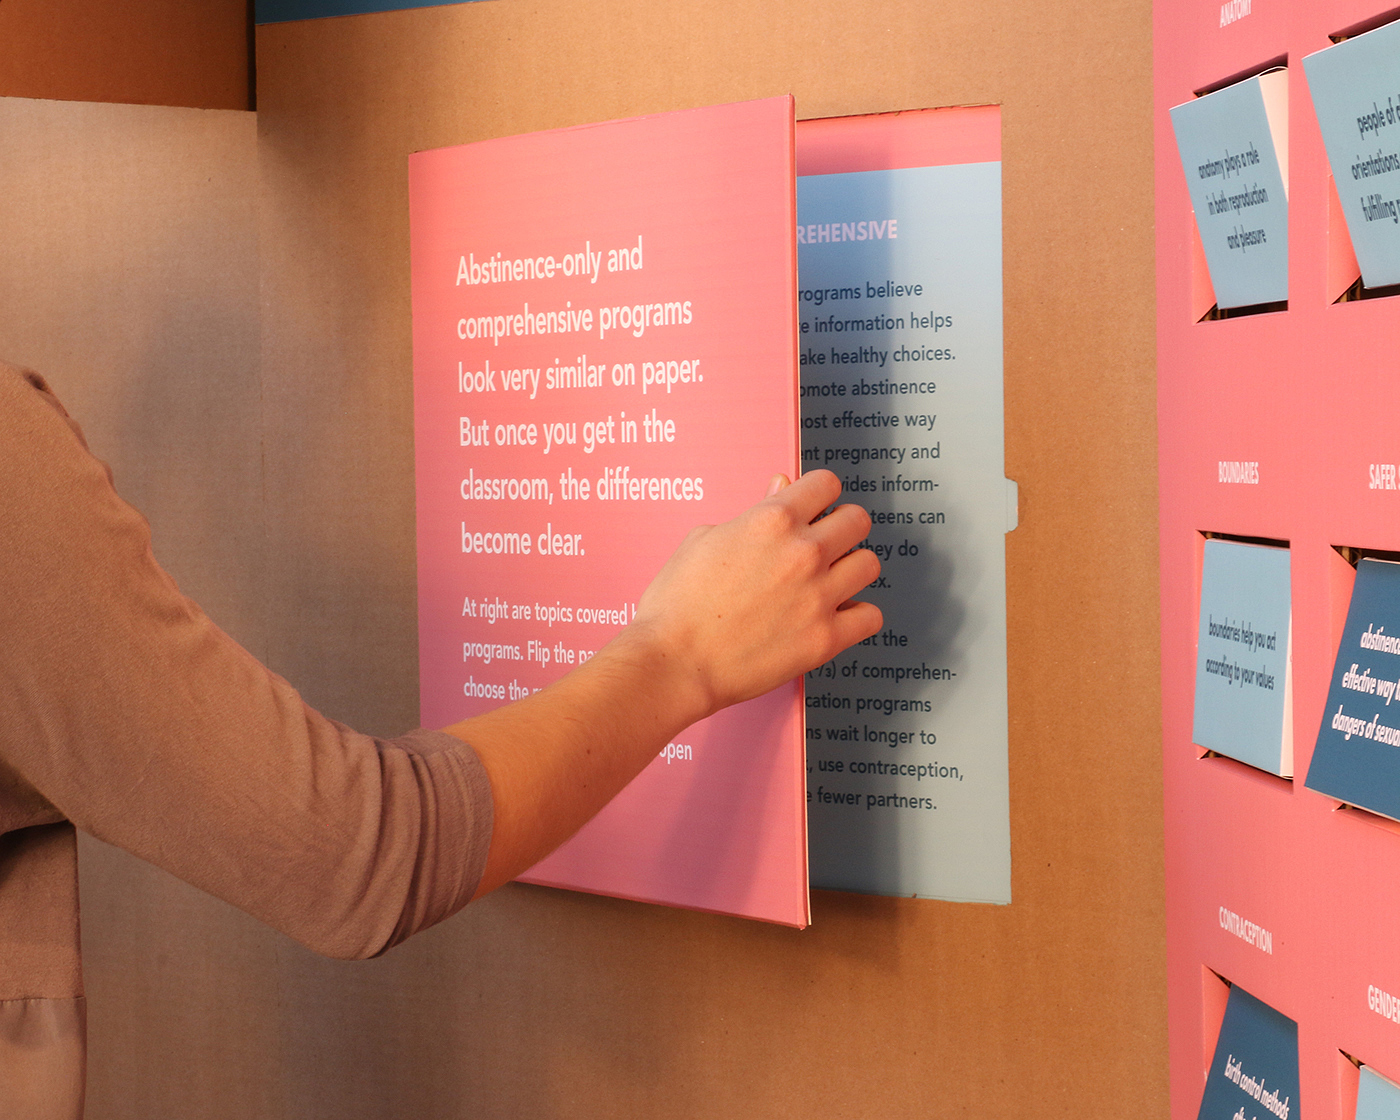 Abstinence-only and
comprehensive programs
look very similar on paper.
But once you get in the
classroom, the differences
become clear.
At right are topics covered
programs. Flip the
choose the
open
REHENSIVE
rograms believe
information helps
ake healthy choices.
omote abstinence
ost effective way
ent pregnancy and
vides inform-
teens can
they do
ex.
at the
(⅔) of comprehen-
cation programs
ns wait longer to
, use contraception,
fewer partners.
ANATOMY
anatomy plays a role
in both reproduction
and pleasure
people of
orientations
fulfilling
BOUNDARIES
boundaries help you act
according to your values
SAFER
abstinence
effective way
dangers of sexua
CONTRACEPTION
birth control methods
GENDER